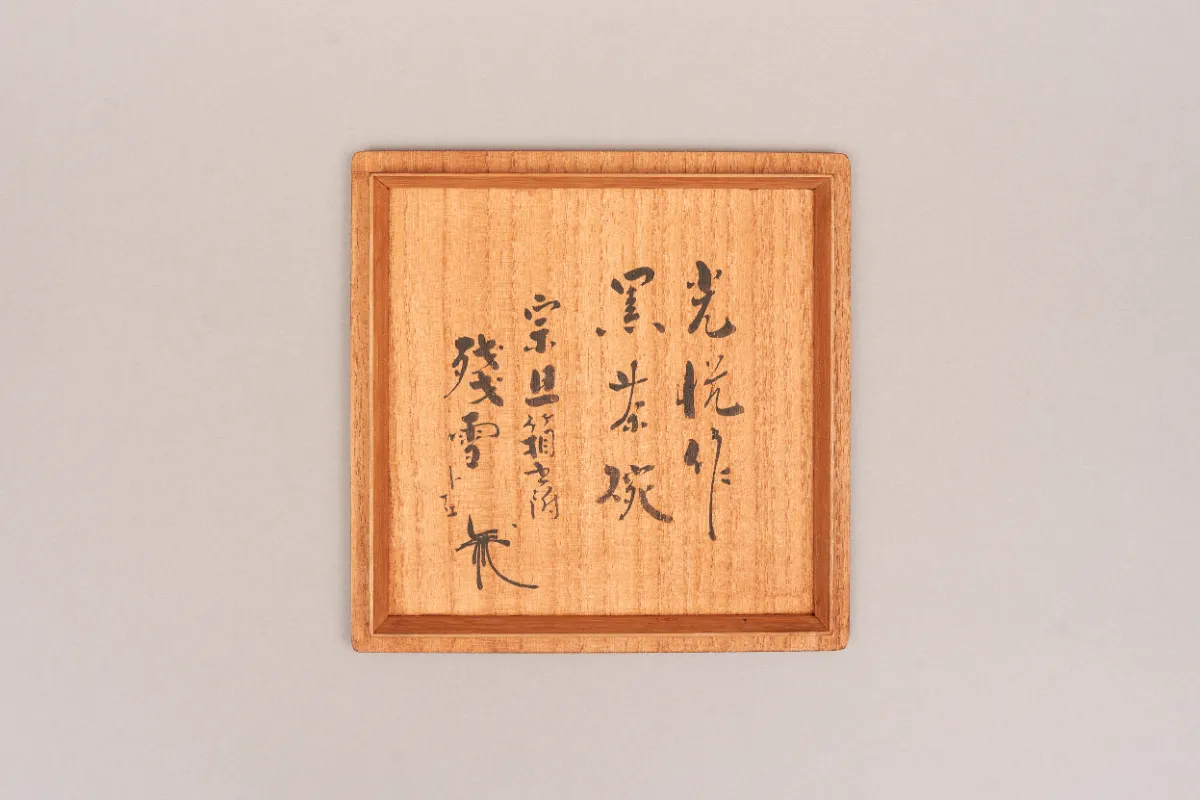 光悦作
黒茶碗
宗旦箱書附
残雪ト有